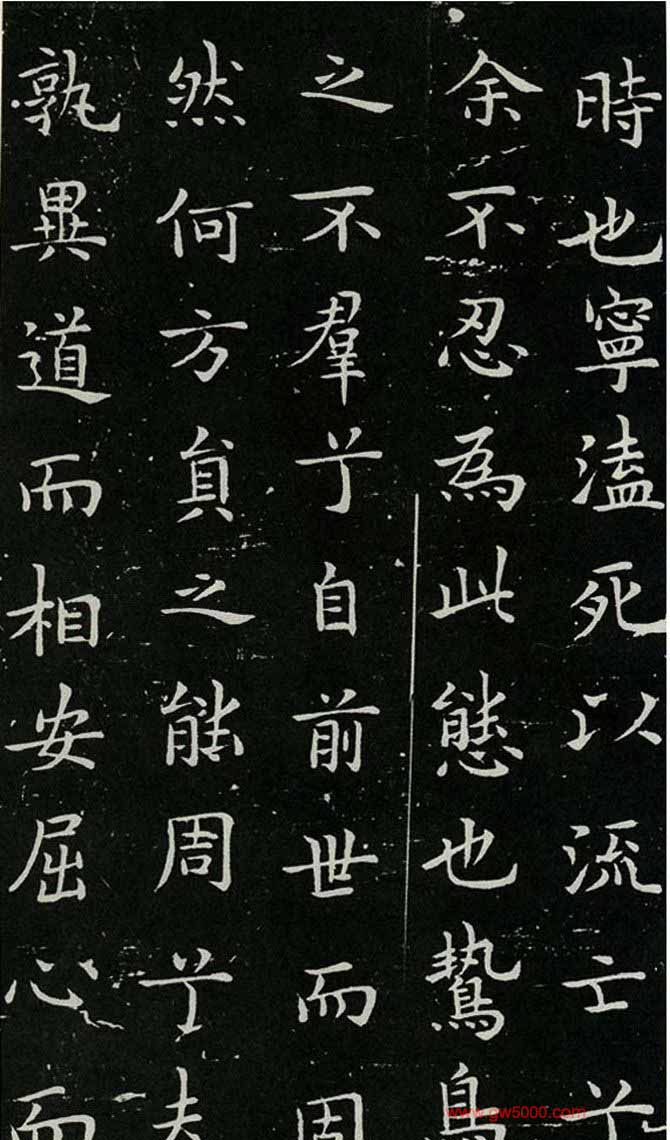 時也寧溘死以流亡兮
余不忍為此態也鷙鳥
之不羣兮自前世而固
然何方員之能周兮夫
孰異道而相安屈心而
www.gw5000.com